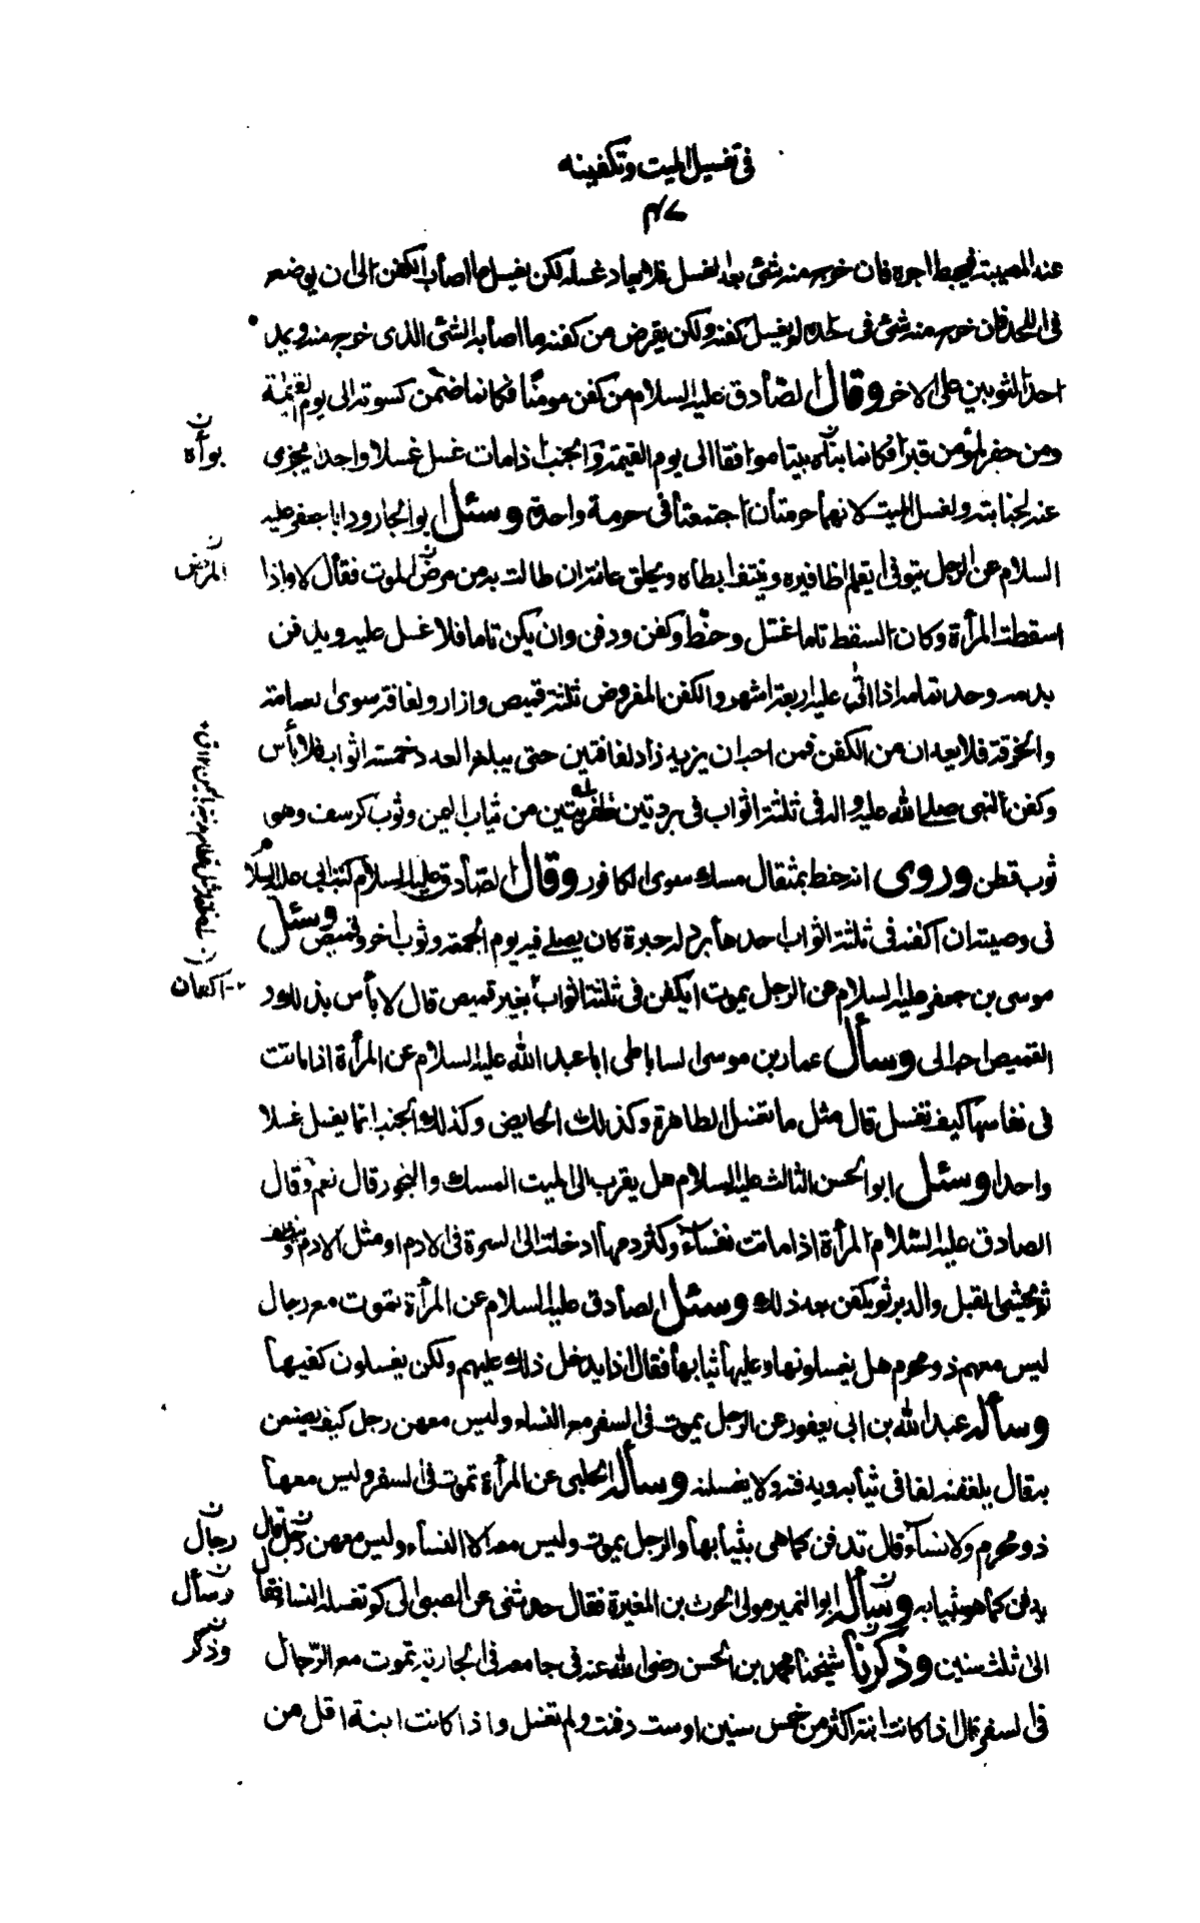 في تغسيل الميت وتكفينه
٤٧
عند المصيبة فيحبط اجره فان خرج منه شئ بعد الغسل فلا يعاد غسله لكن يغسل ما اصاب الكفن الى ان يوضع
في اللحد فان خرج منه شئ في لحده لم يغسل كفنه ولكن يقرض من كفنه ما اصابه الشئ الذى خرج منه ويمد
احد الثوبين على الاخر وقال الصادق عليه السلام من كفن مومنا فكانما ضمن كسوته الى يوم القيمة
ومن حفر لمؤمن قبرا فكانما بناه بيتا موافقا الى يوم القيمة والجنب اذا مات غسل غسلا واحدا يجزى
بوأه
عنه لجنابته ولغسل الميت لانهما حرمتان اجتمعتا في حرمة واحدة وسئل ابو الجارود ابا جعفر عليه
السلام عن الرجل يتوفى ايقلم اظافيره وينتف ابطاه ويحلق عانته ان طالت به من مرض الموت فقال لا واذا
المرض
اسقطت المرأة وكان السقط تاما اغتسل وحنط وكفن ودفن وان يكن تاما فلا غسل عليه ويدفن
بدمه وحد تمامه اذا اتى عليه اربعة اشهر والكفن المفروض ثلثة قميص وازار ولفافة سوى العمامة
والخرقة فلا يعدان من الكفن فمن احب ان يزيد زاد لفافتين حتى يبلغ العدد خمسة اثواب فلا بأس
وكفن النبي صلى الله عليه واله في ثلثة اثواب في بردتين ظفريتين من ثياب اليمن وثوب كرسف وهو
ثوب قطن وروى انه حنط بمثقال مسك سوى الكافور وقال الصادق عليه السلام كتب ابى عليه السلام
في وصيته ان اكفنه في ثلثة اثواب احدها برد له حبرة كان يصلي فيه يوم الجمعة وثوب اخر وقميص وسئل
موسى بن جعفر عليه السلام عن الرجل يموت ايكفن في ثلثة اثواب بغير قميص قال لا بأس بذلك و
القميص احب الى وسأل عمار بن موسى الساباطي ابا عبد الله عليه السلام عن المرأة اذا ماتت
في نفاسها كيف تغسل قال مثل ما تغسل الطاهرة وكذلك الحايض وكذلك الجنب انما يغسل غسلا
واحدا وسئل ابو الحسن الثالث عليه السلام هل يقرب الى الميت المسك والبخور قال نعم وقال
الصادق عليه السلام المرأة اذا ماتت نفساء وكثر دمها ادخلت الى السرة في الادم او مثل الادم وتنظف
ثم يحشى القبل والدبر ثم يكفن بعد ذلك وسئل الصادق عليه السلام عن المرأة تموت مع رجال
ليس معهم ذو محرم هل يغسلونها وعليها ثيابها فقال اذا يدخل ذلك عليهم ولكن يغسلون كفيها
وسأله عبد الله بن ابى يعفور عن الرجل يموت في السفر مع النساء وليس معهن رجل كيف يصنعن
به قال يلففنه لفا في ثيابه ويدفنه ولا يغسلنه وسأله الحلبي عن المرأة تموت في السفر وليس معها
ذو محرم ولا نساء قال تدفن كما هي بثيابها والرجل يموت وليس معه الا النساء وليس معهن رجل قال
رجال
يدفن كما هو بثيابه وسأل ابو النمير مولى الحرث بن المغيرة فقال حدثني عن الصبى الى كم تغسله النساء فقال
وسأل
الى ثلث سنين وذكرنا شيخنا محمد بن الحسن رضى الله عنه في جامعه في الجارية تموت مع الرجال
وذكر
في السفر قال اذا كانت ابنة اكثر من خمس سنين او ست دفنت ولم تغسل واذا كانت ابنة اقل من